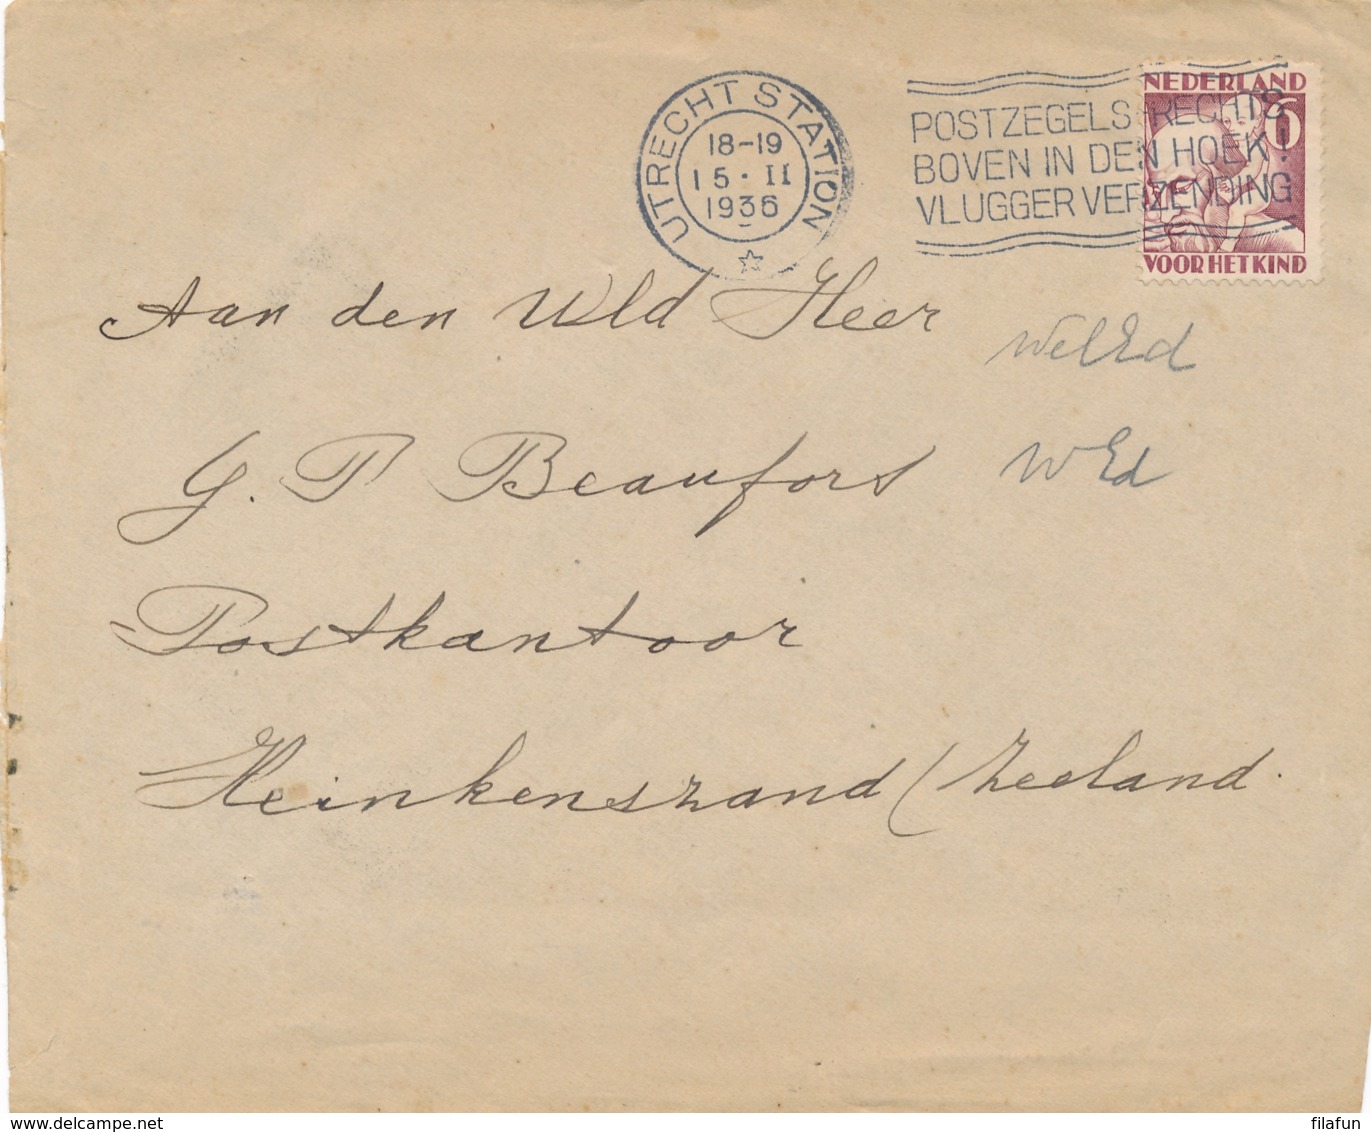 UTRECHT STATION
18-19
15·II
1936
POSTZEGELS RECHTS
BOVEN IN DEN HOEK!
VLUGGER VERZENDING
NEDERLAND
6
VOOR HET KIND
Aan den Uld Heer
WelEd
G. P Beaufors
WEd
Postkantoor
Heinkenszand / Zeeland.
delcampe.net
filafun